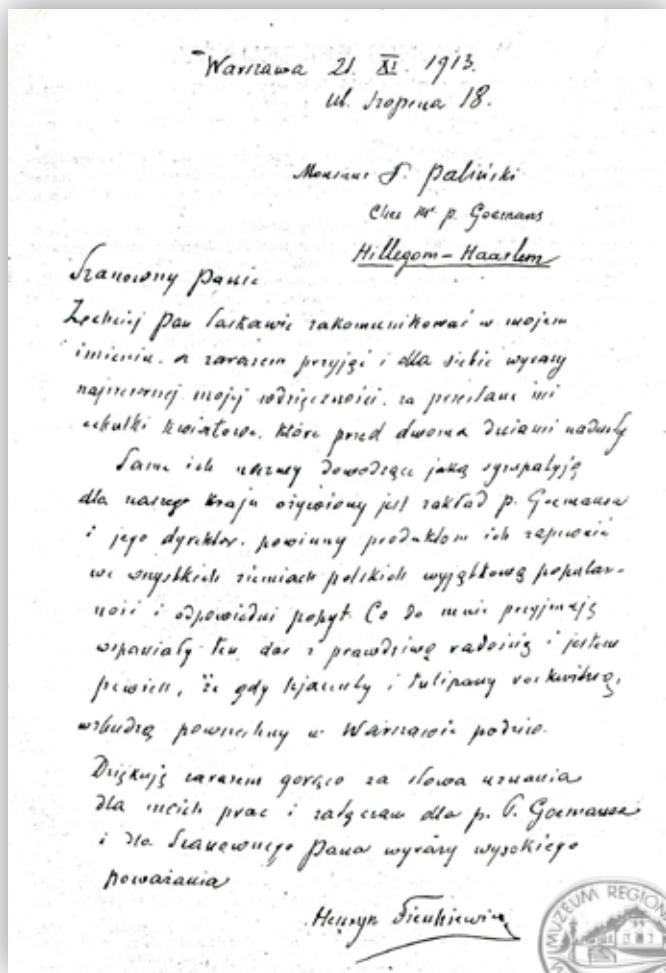 Warszawa 21. XI. 1913.
ul. Szopena 18.
Monsieur T. Paliński
Chez Mr. P. Goemans
Hillegom – Haarlem
Szanowny Panie
Zechciej Pan łaskawie zakomunikować w mojem
imieniu, a zarazem przyjąć i dla siebie wyrazy
najszczerszej mojej wdzięczności, za przesłane mi
cebulki kwiatowe, które przed dwoma dniami nadeszły
Same ich nazwy dowodzące jaką sympatyją
dla naszego kraju ożywiony jest zakład p. Goemansa
i jego dyrektor, powinny produktom ich zapewnić
we wszystkich ziemiach polskich wyjątkową popular-
ność i odpowiedni popyt. Co do mnie przyjmuję
wspaniały ten dar z prawdziwą radością i jestem
pewien, że gdy hjacenty i tulipany rozkwitną,
wzbudzą powszechny w Warszawie podziw.
Dziękuję zarazem gorąco za słowa uznania
dla moich prac i załączam dla p. P. Goemansa
i dla Szanownego Pana wyrazy wysokiego
poważania
Henryk Sienkiewicz
MUZEUM REGION